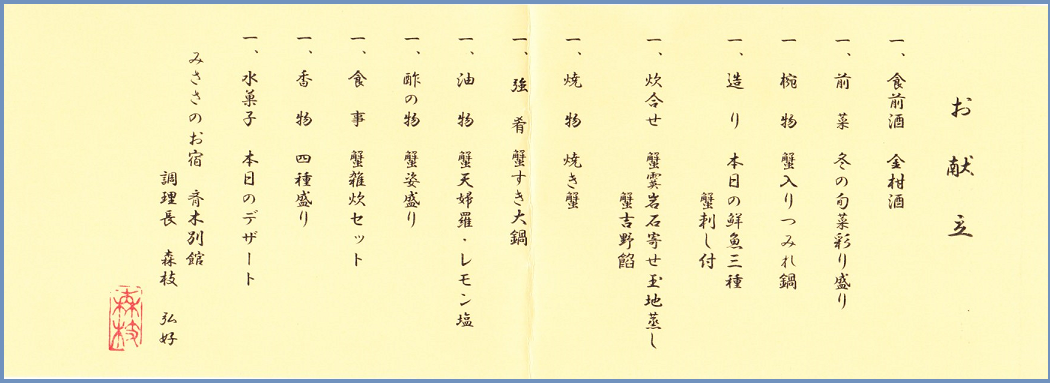 お献立
一、食前酒　金柑酒
一、前　菜　冬の旬菜彩り盛り
一　椀　物　蟹入りつみれ鍋
一、造　り　本日の鮮魚三種
蟹刺し付
一、炊合せ　蟹雲岩石寄せ玉地蒸し
蟹吉野餡
一、焼　物　焼き蟹
一、強　肴　蟹すき大鍋
一、油　物　蟹天婦羅・レモン塩
一、酢の物　蟹姿盛り
一、食　事　蟹雑炊セット
一、香　物　四種盛り
一、水菓子　本日のデザート
みささのお宿　斉木別館
調理長　森枝　弘好
森枝